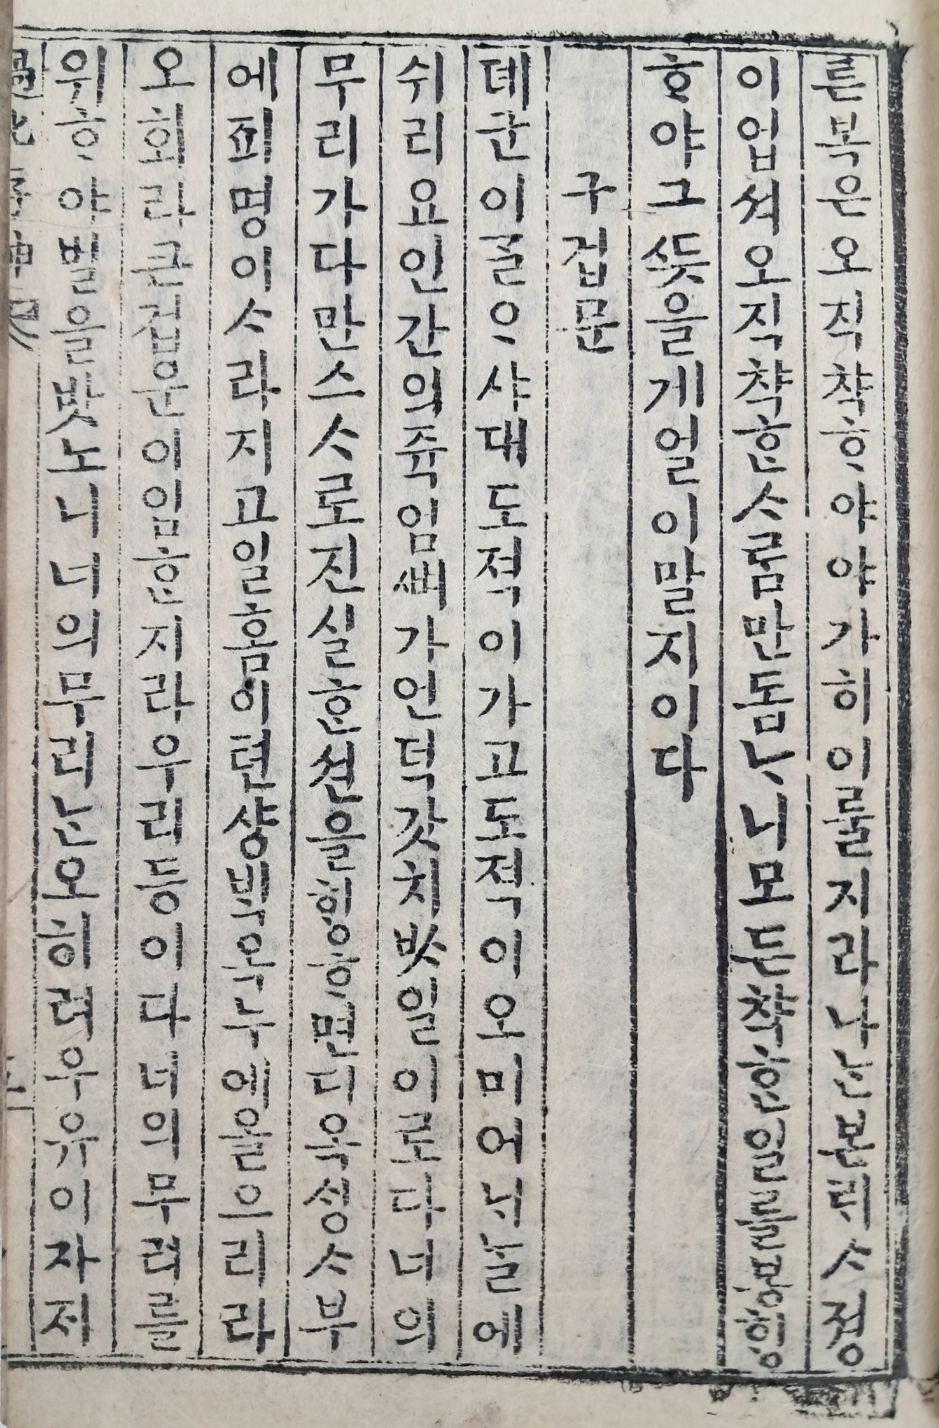 른복은오직챡ᄒᆞ야야가히이룰지라나ᄂᆞᆫ본ᄃᆡᄉᆞ졍
이업셔오직챡ᄒᆞᆫ사ᄅᆞᆷ만돕ᄂᆞ니모든챡ᄒᆞᆫ일을봉ᄒᆡᆼ
ᄒᆞ야그ᄯᅳᆺ을게얼이말지이다
구겁문
뎨군이ᄀᆞᆯᄋᆞ샤대도적이가고도적이오미어ᄂᆞ날에
쉬리요인간의쥭임ᄲᅧ가언덕갓치밧일이로다너의
무리가다만스ᄉᆞ로진실ᄒᆞᆫ션을ᄒᆡᆼᄒᆞ면디옥셩ᄉᆞ부
에죄명이ᄉᆞ라지고일홈이텬샹ᄇᆡᆨ옥누에올으리라
오회라큰겁운이임ᄒᆞᆫ지라우리등이다너의무려를
위ᄒᆞ야벌을밧노니너의무리ᄂᆞᆫ오히려우유이자저